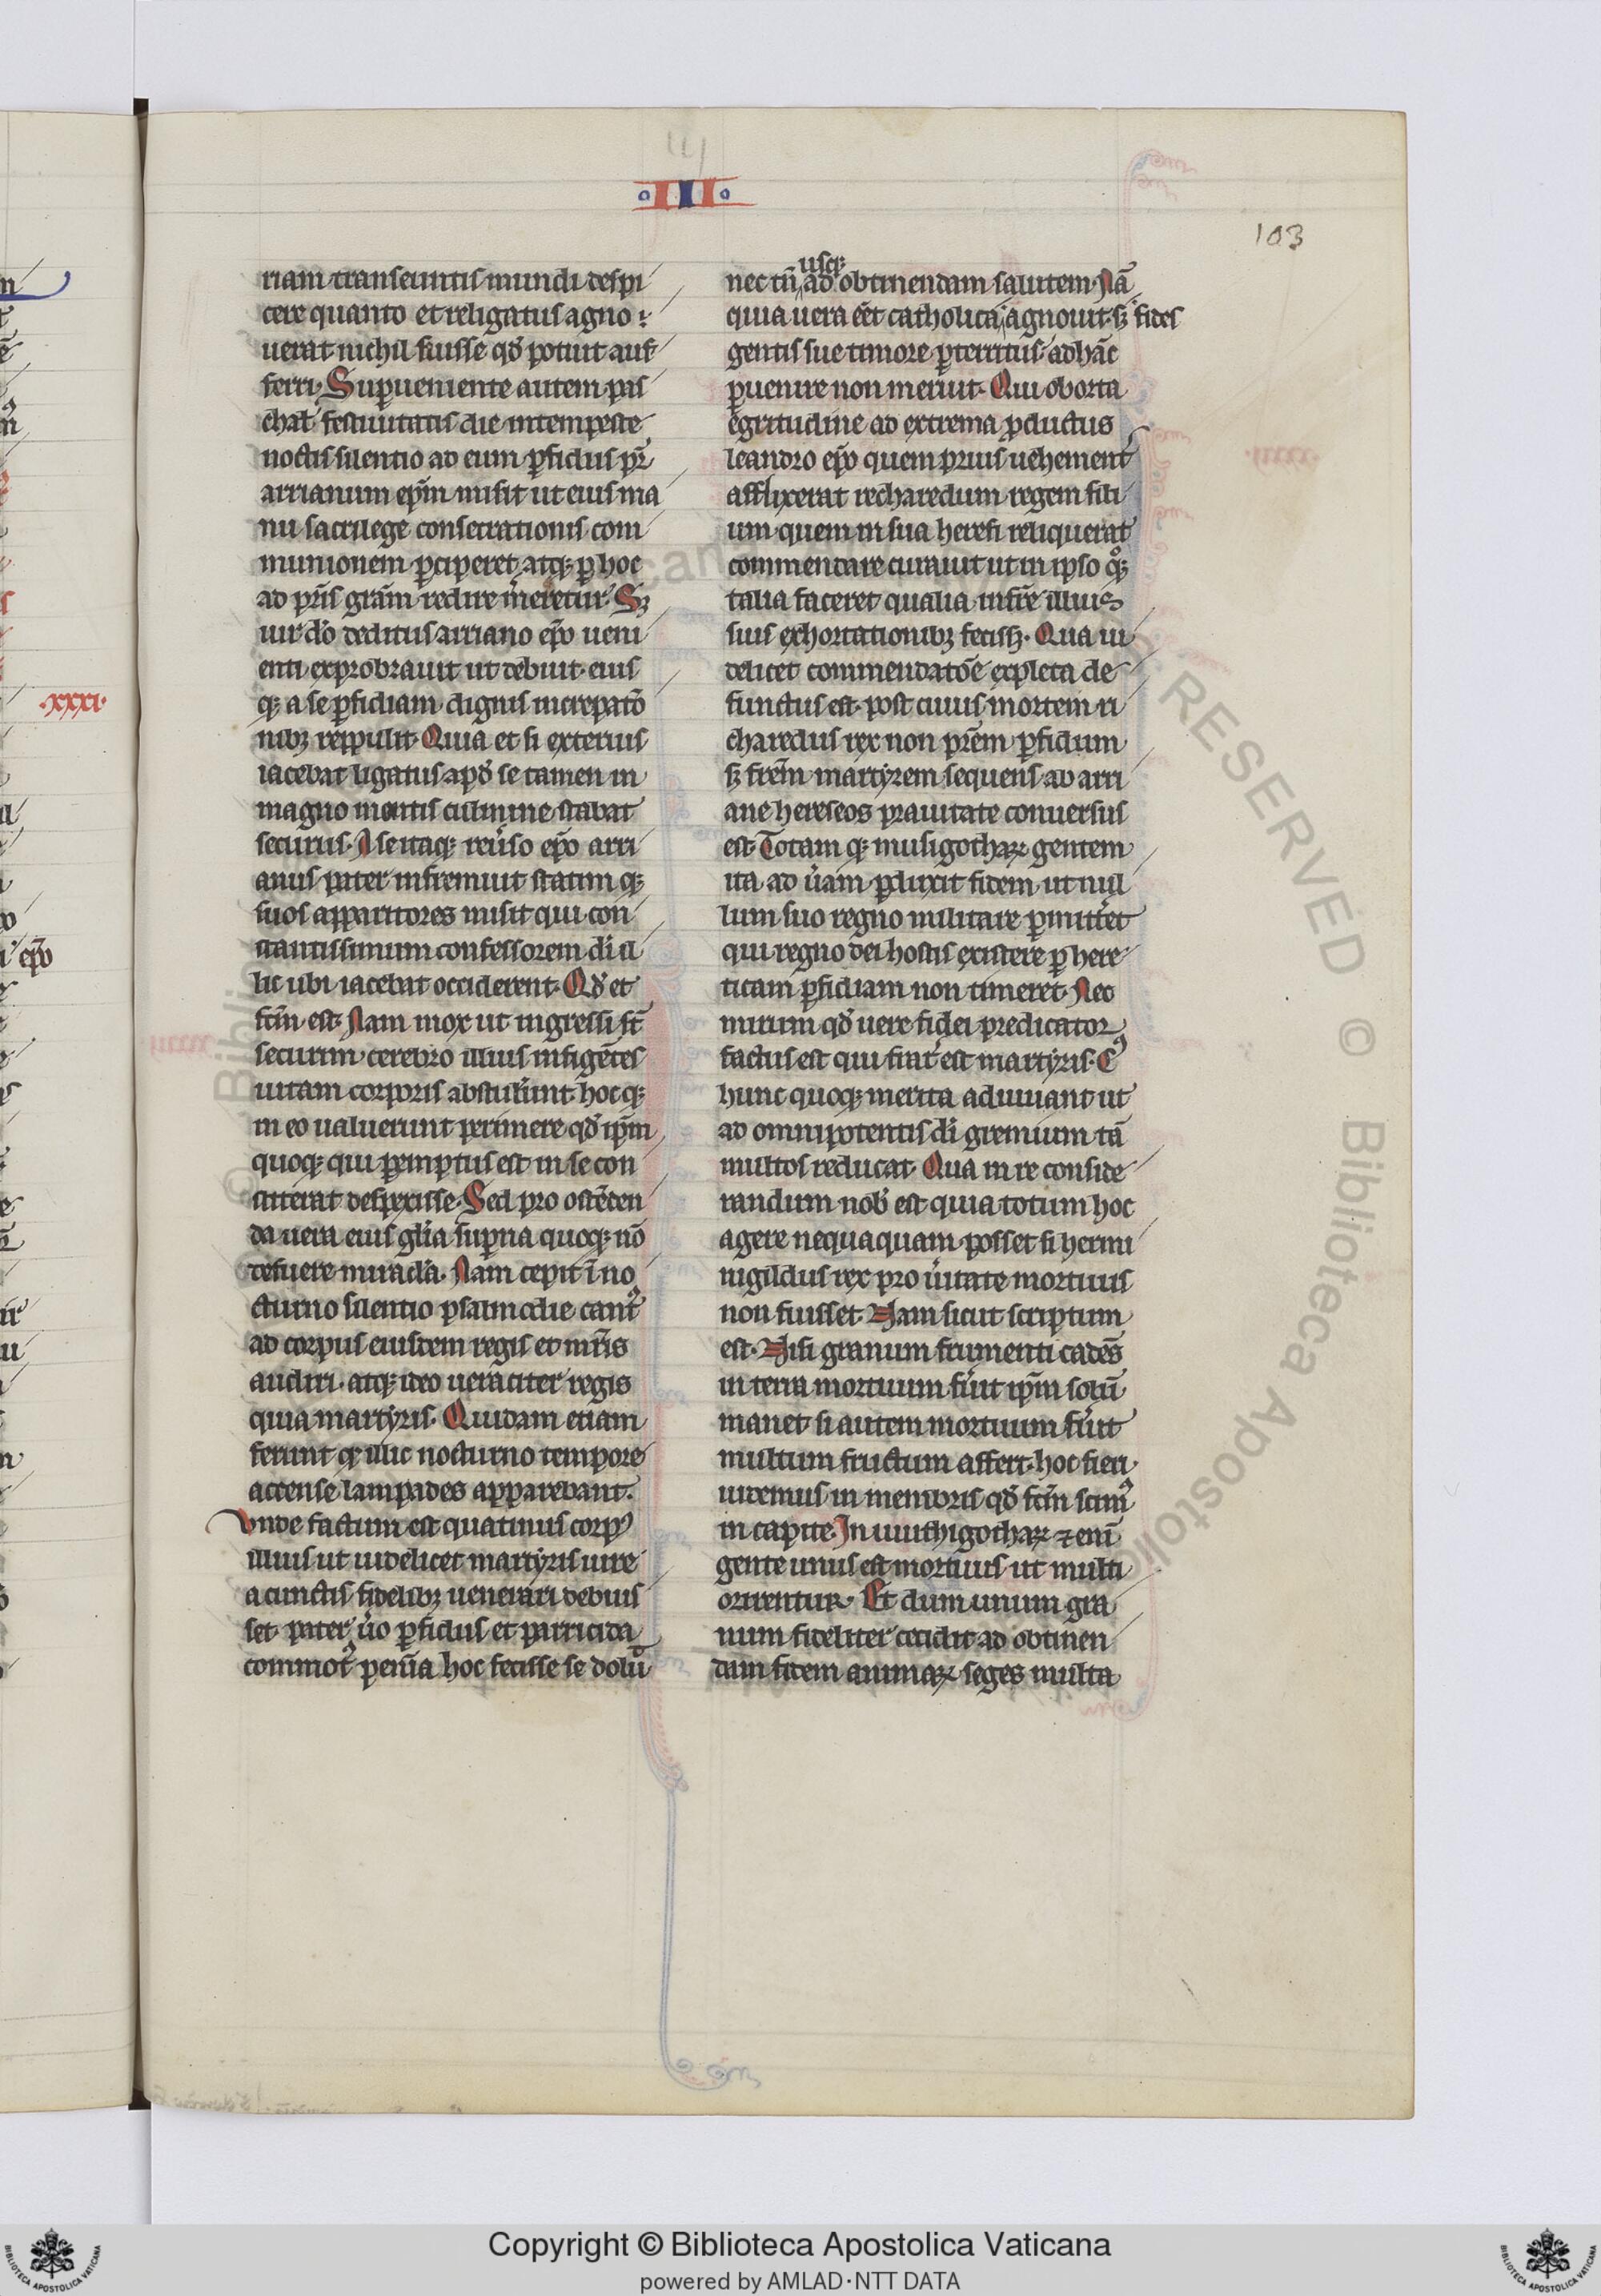 III
103
riam transeuntis mundi despi
cere quanto et religatus agno
uerat nichil fuisse qd̓ potuit auf
ferri. Supueniente autem pas
chał festiuitatis die intempeste
noctis silentio ad eum pfidus pr̄
arrianum ep̄m misit ut eius ma
nu sacrilege consecrationis com
munionem pciperet atq; p hoc
ad pr̄is grām redire meretur. Sꝫ
uir do᷑ deditus arriano ep̄o ueni
enti exprobrauit ut debuit. eius
q; a se pfidiam dignis increpatōi
nibꝫ reppulit. Quia et si exterius
iacebat ligatus apd̓ se tamen in
magno mentis culmine stabat
securus. Ise itaq; reu̓so ep̄o arri
anus pater infremuit statim q;
suos apparitores misit qui con
stantissimum confessorem di il
lic ubi iacebat occiderent. Qd̓ et
fc̄m est. Nam mox ut ingressi st̄
securim cerebro illius infigētes
uitam corporis abstul̓unt. hoc q;
in eo ualuerunt perimere qd̓ ip̄m
quoq; qui pemptus est in se con
stiterat despexisse. Sed pro ostēden
da uera eius gl̄ia supna quoq; nō
defuere miracl̓a. Nam cepit ī no
cturno silentio psalmodie cant᷑
ad corpus eiusdem regis et mr̄is
audiri. atq; ideo ueraciter regis
quia martyris. Quidam etiam
ferunt q illic nocturno tempore
accense lampades apparebant.
Vnde factum est quatinus corpꝰ
illius ut uidelicet martyris iure
a cunctis fidelibꝫ uenerari debuis
set. pater u̓o pfidus et parricida
commot᷑ penīa hoc fecisse se doluᷓ
usq;
nec tn̄ ad obtinendam salutem. Nā
quia uera eēt catholica agnouit. sꝫ fides
gentis sue timore pterritus ad hāc
puenire non meruit. Qui oborta
egritudine ad extrema pductus
leandro ep̄o quem prius uehement᷑
afflixerat recharedum regem fili
um quem in sua heresi reliquerat
commendare curauit ut in ipso qͦꝫ
talia faceret qualia in fr̄e illius
suis exhortationibꝫ fecisꝫ. Qua ui
delicet commendatōe expleta de
functus est. post cuius mortem ri
charedus rex non prēm pfidum
sꝫ frēm martyrem sequens ab arri
ane hereseos prauitate conuersus
est. Totam q; musigothaꝝ gentem
ita ad u̓am pduxit fidem ut nul
lum suo regno militare pmitt̓et
qui regno dei hostis existere p here
ticam pfidiam non timeret. Nec
mirum qd̓ uere fidei predicator
factus est qui frat᷑ est martyris. Cꝰ
hunc quoq; merita adiuuant ut
ad omnipotentis di gremium tā
multos reducat. Qua in re conside
randum nob̓ est quia totum hoc
agere nequaquam posset si hermi
nigildus rex pro u̓itate mortuus
non fuisset. Nam sicut scriptum
est. Nisi granum frumenti cadēs
in terra mortuum fu̓it ip̄m solū
manet. si autem mortuum fu̓it
multum fructum affert. hoc fieri
uidemus in membris qd̓ fc̄m scim᷑
in capite. In uuithigothaꝝ ⁊enī
gente unus est mortuus ut multi
orirentur. Et dum unum gra
num fideliter cecidit ad obtinen
dam fidem animaꝝ seges multa
.xxxi.
ep̄o
Copyright © Biblioteca Apostolica Vaticana
powered by AMLAD·NTT DATA